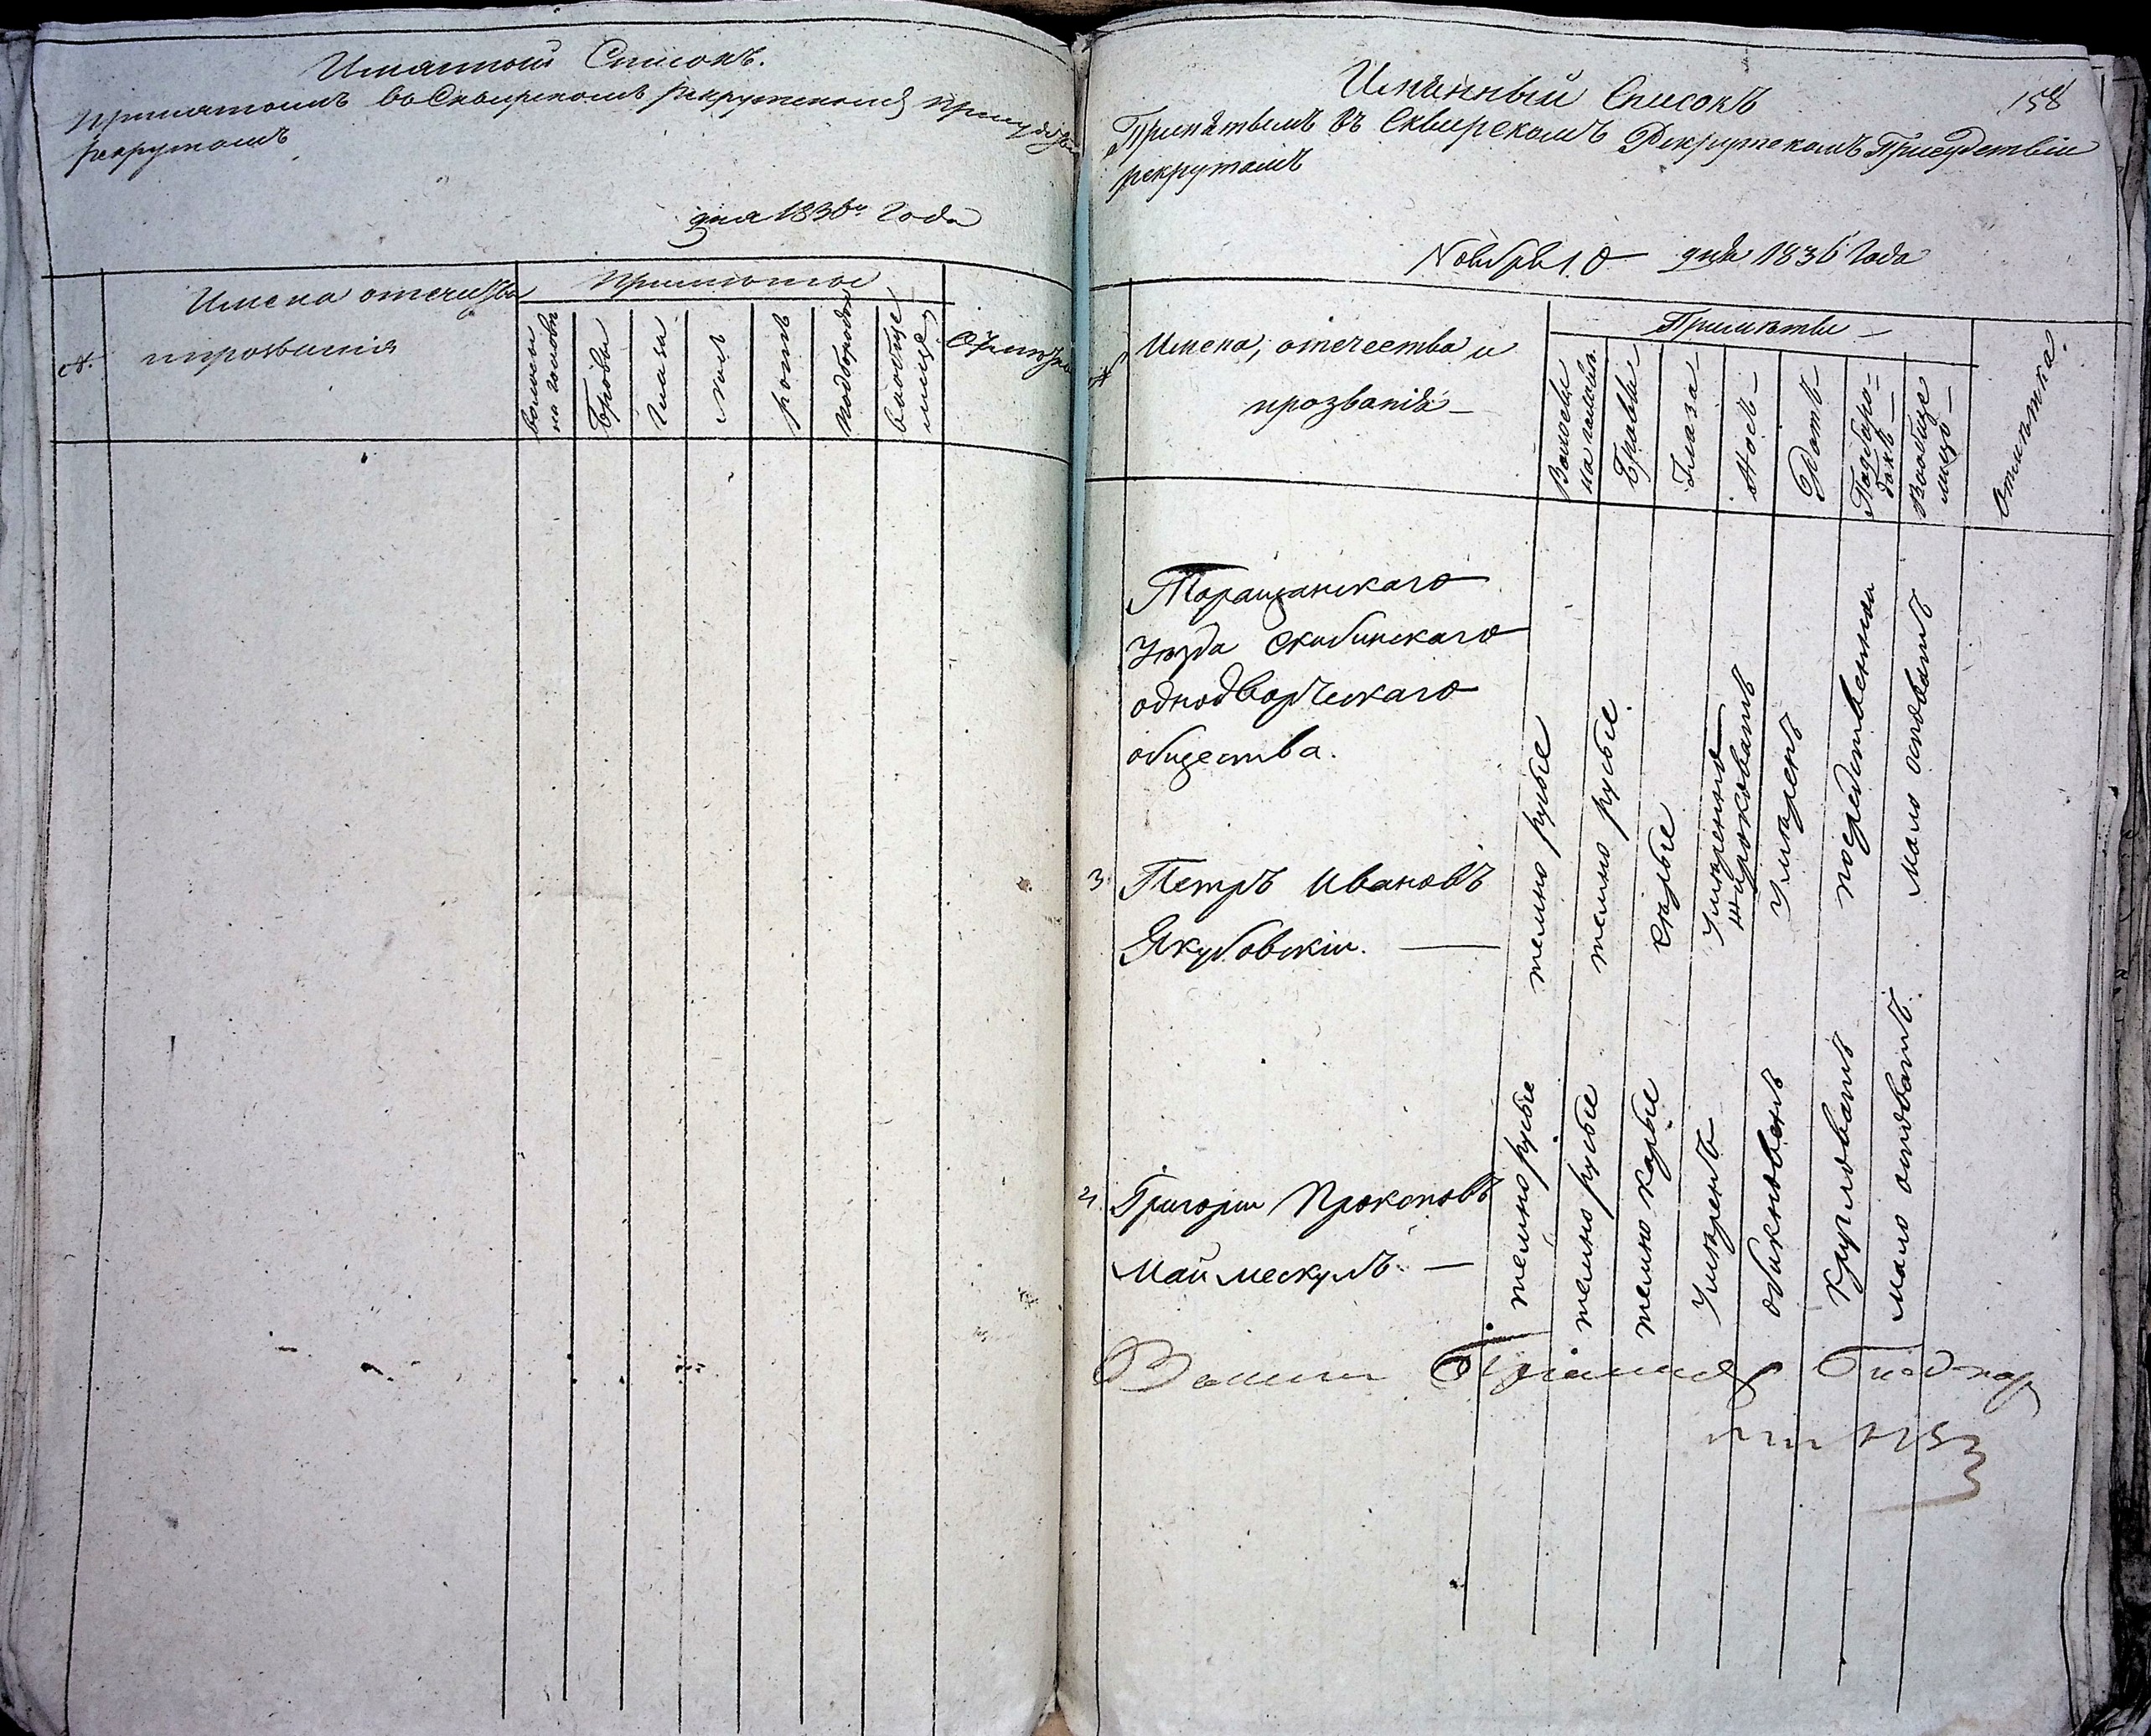 Имянной Списокъ.
Принятымъ во Сквирскомъ рекрутскомъ
рекрутамъ
дня 1836го Года
Имена отечества
и прозвания
приметы
волосы
на голове
брови
глаза
носъ
ротъ
подбородокъ
вообще
лице
158
Имянный Списокъ
Принятымъ въ Сквирскомъ Рекрутскомъ Присудствіи
рекрутамъ
Ноября 10 дня 1836 Года
№
Имена, отечества и
прозванія
Приметы
Волосы
на голове
Брови
Глаза
Носъ
Ротъ
Подборо-
докъ
Вообще
лицо
Отметка.
Таращанскаго
уезда Скибинскаго
однодворческаго
общества.
3. Петръ Ивановъ
Якубовскіи.
темно русые
темно русые.
серые
Умеренно
широковатъ
Умеренъ
посредственной
Мало осповатъ
4. Григории Прокоповъ
Маимескулъ.
темно русые
темно русые
темно карые
Умеренъ
обикновенъ
кругловатъ
мало осповатъ.